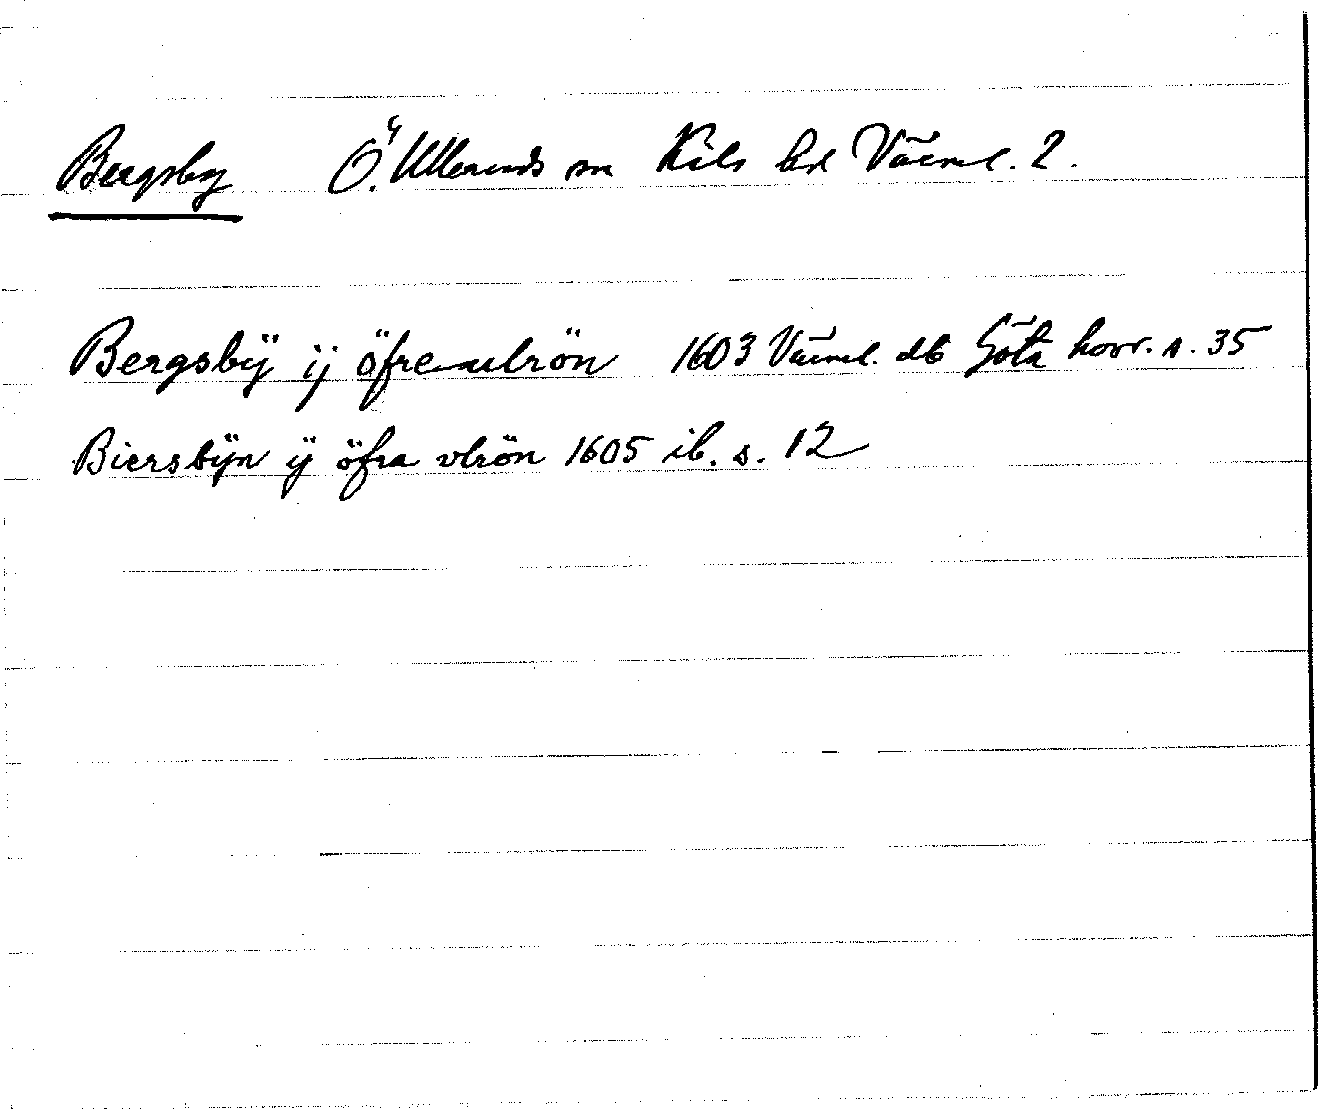 Bergsby Ö. Ulleruds sn Kils hd Värml. 2.
Bergsbÿ ij öfre ulrön 1603 Värml. db Göta hovr. s. 35
Biersbÿn ÿ öfra vlrön 1605 ib. s. 12